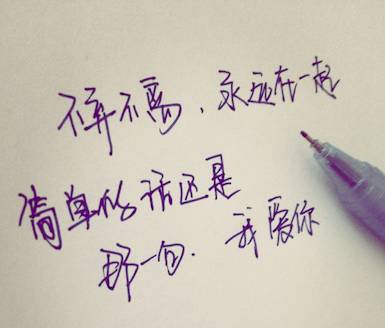 不弃不离、永远在一起
简单的话还是
那一句. 我爱你